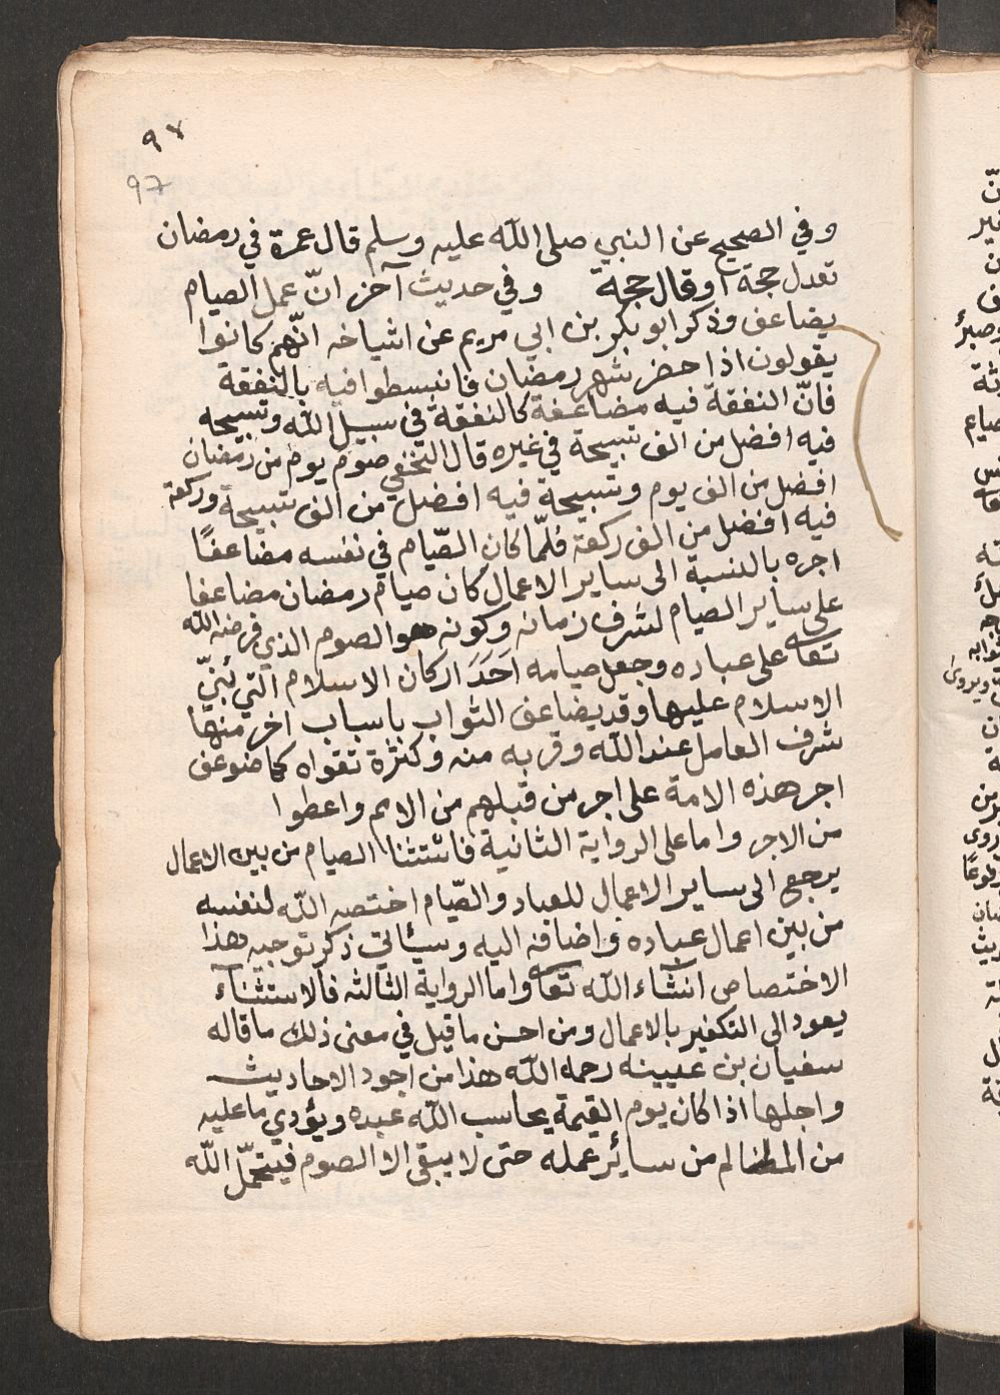 ٩٧
97
وفي الصحيح عن النبي صلى الله عليه وسلم قال عمرة في رمضان
تعدل حجة او قال حجة وفي حديث آخر انّ عمل الصيام
يضاعف وذكر ابو بكر بن ابي مريم عن اشياخه انّهم كانوا
يقولون اذا حضر شهر رمضان فانبسطوا فيه بالنفقة
فانّ النفقة فيه مضاعفة كالنفقة في سبيل الله وتسبيحه
فيه افضل من الف تسبيحة في غيره قال النخعي صوم يوم من رمضان
افضل من الف يوم وتسبيحة فيه افضل من الف تسبيحة وركعة
فيه افضل من الف ركعة فلمّا كان الصّيام في نفسه مضاعفًا
اجره بالنسبة الى ساير الاعمال كان صيام رمضان مضاعفا
على ساير الصيام لشرف زمانه وكونه هو الصوم الذي فرضه الله
تعا على عباده وجعل صيامه اَحَدَ اركان الاسلام التي بُنيّ
الاسلام عليها وقد يضاعف الثواب باسباب اخر منها
شرف العامل عند الله وقربه منه وكثرة تقواه كما ضوعف
اجر هذه الامة على اجر من قبلهم من الامم واعطوا
من الاجر واما على الرواية الثانية فاستثنا الصيام من بين الاعمال
يرجع الى ساير الاعمال للعباد والصّيام اختصه الله لنفسه
من بين اعمال عباده واضافه اليه وسيأتي ذكر توجيه هذا
الاختصاص انشآء الله تعا واما الرواية الثالثه فالاستثنآء
يعود الى التكفير بالاعمال ومن احسن ما قيل في معنى ذلك ما قاله
سفيان بن عيينه رحمه الله هذا من اجود الاحاديث
واجلها اذا كان يوم القيمة يحاسب الله عبده ويؤدي ما عليه
من المظالم من سائر عمله حتى لا يبقى الا الصوم فيتحمّل الله